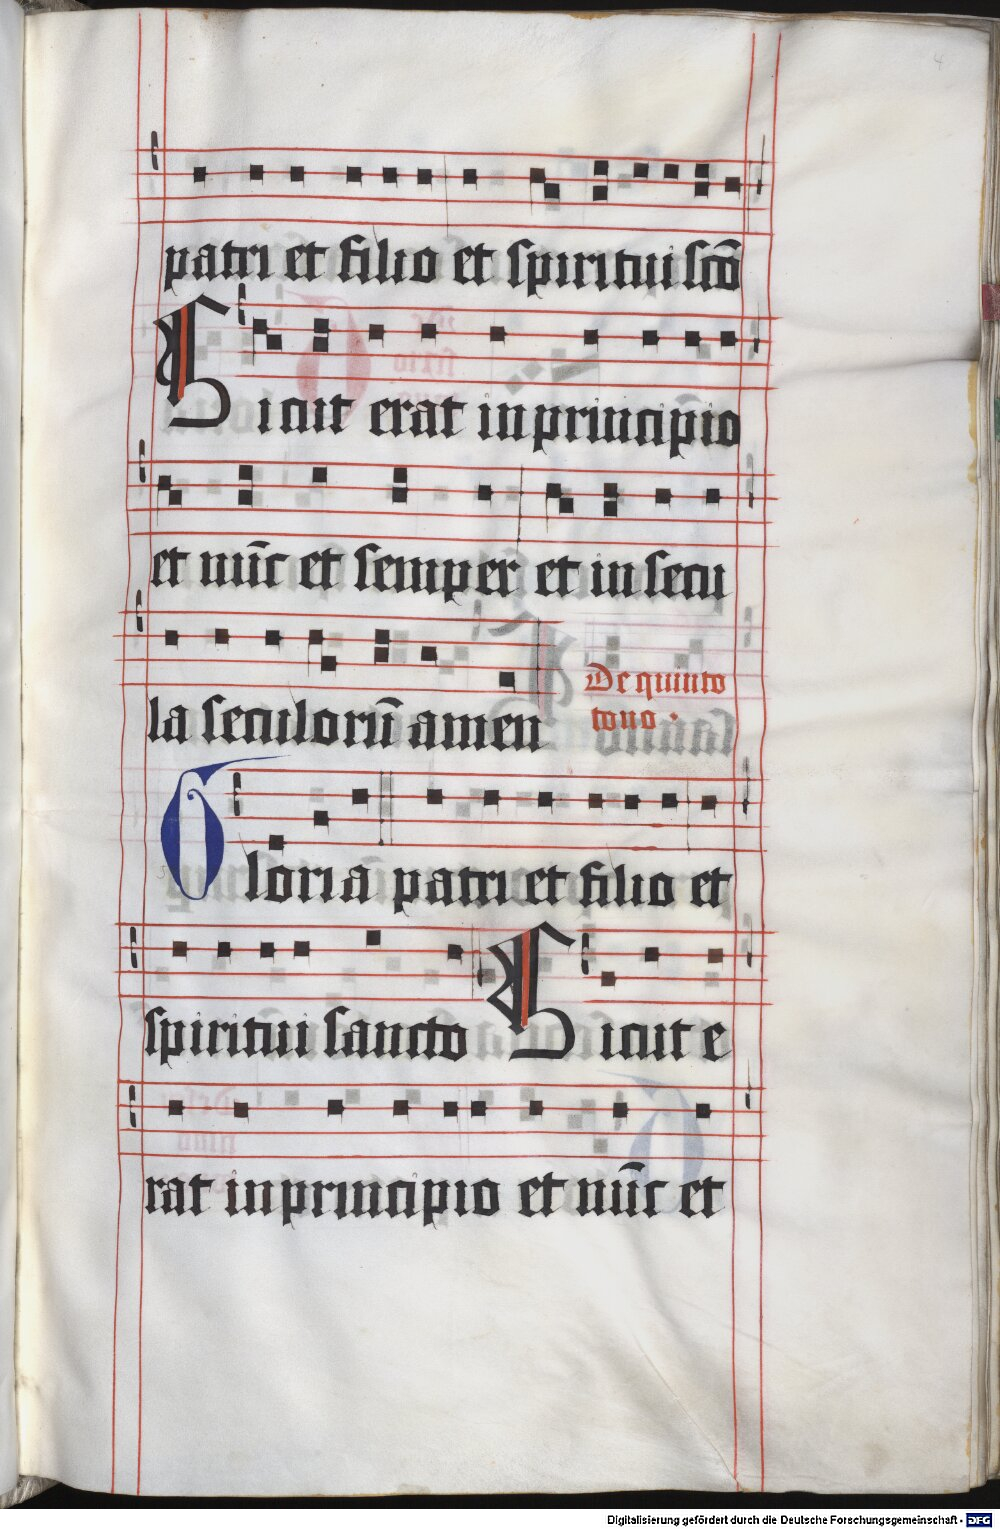 4
patri et filio et spiritui scō
Sicut erat in principio
et nūc et semper et in secu
la seculorū amen
De quinto
tono .
Gloria patri et filio et
spiritui sancto Sicut e
rat in principio et nūc et
Digitalisierung gefördert durch die Deutsche Forschungsgemeinschaft - DFG